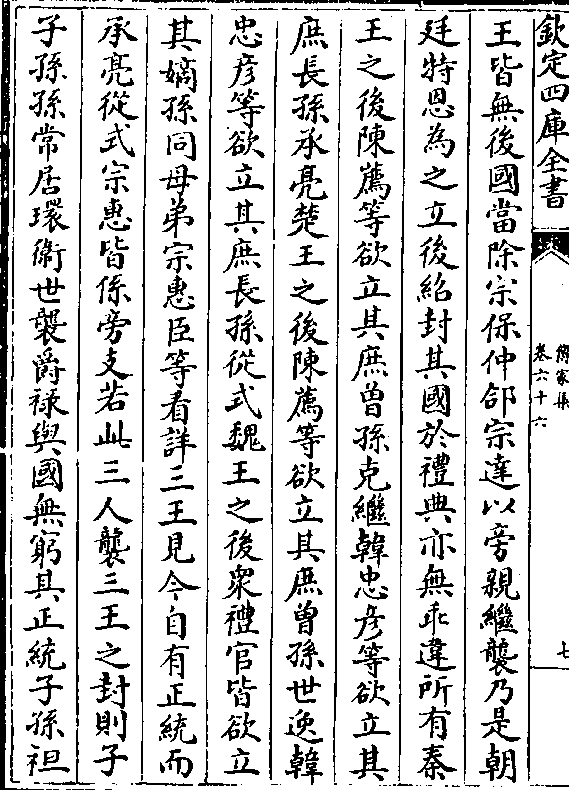 欽定四庫全書
傳家集
卷六十六
七
王皆無後國當除宗保仲郃宗達以旁親繼襲乃是朝
廷特恩為之立後紹封其國於禮典亦無乖違所有秦
王之後陳薦等欲立其庶曾孫克繼韓忠彦等欲立其
庶長孫承亮楚王之後陳薦等欲立其庶曾孫世逸韓
忠彦等欲立其庶長孫從式魏王之後衆禮官皆欲立
其嫡孫同母弟宗惠臣等看詳三王見今自有正統而
承亮從式宗惠皆係旁支若此三人襲三王之封則子
子孫孫常居環衛世襲爵禄與國無窮其正統子孫袒